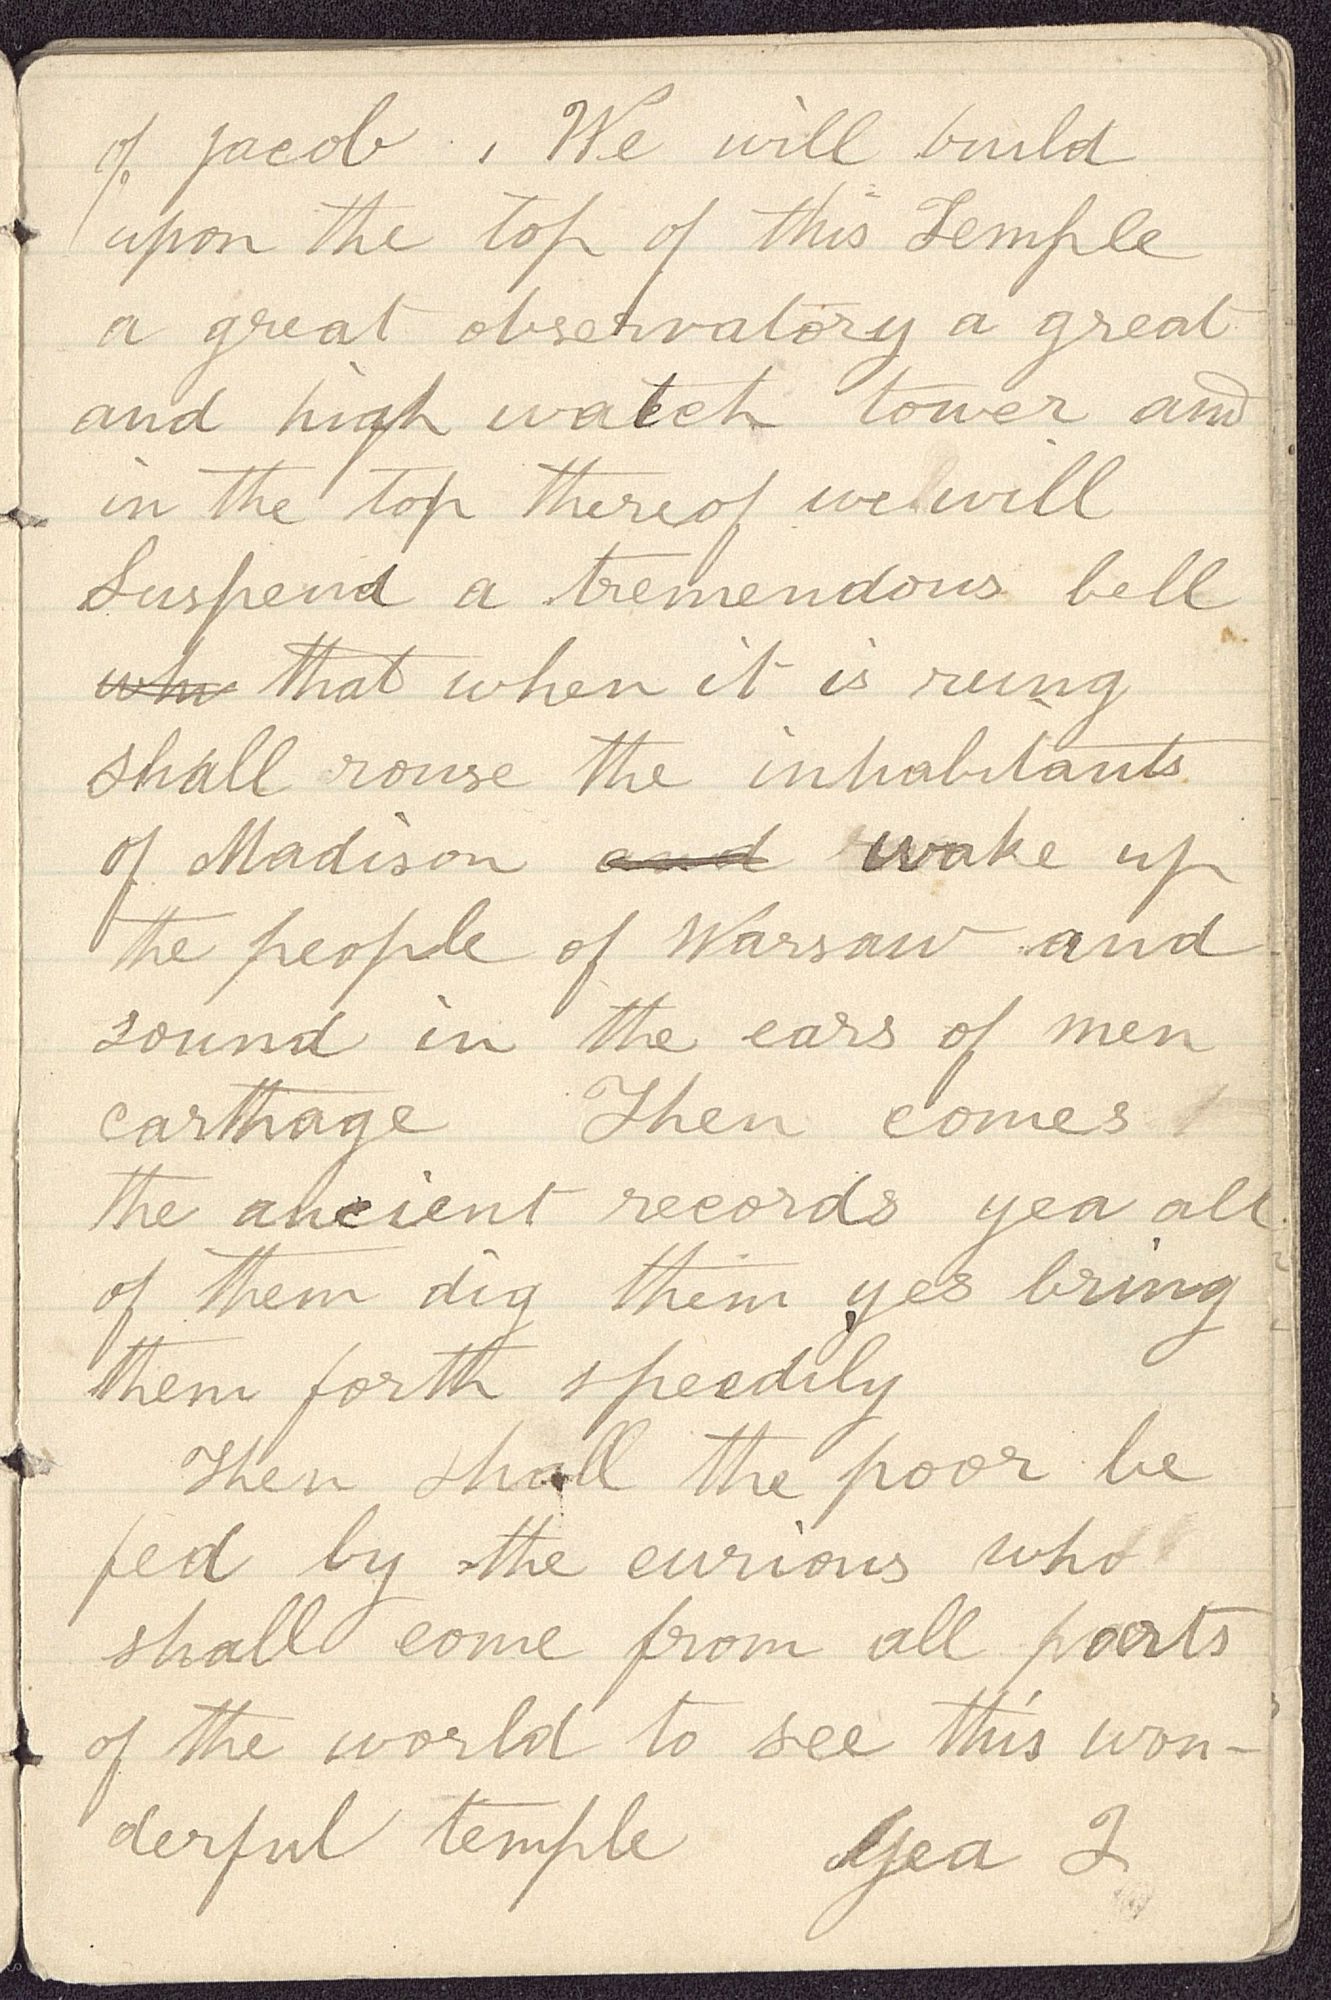 of Jacob , We will build
upon the top of this Temple
a great observatory a great
and high watch tower and
in the top thereof we will
Suspend a tremendous bell
wh that when it is rung
shall rouse the inhabitants
of Madison and wake up
the people of Warsaw and
sound in the ears of men
carthage Then comes
the ancient records yea all
of them dig them yes bring
them forth speedily
Then shall the poor be
fed by the curious who
shall come from all parts
of the world to see this won-
derful temple Yea I